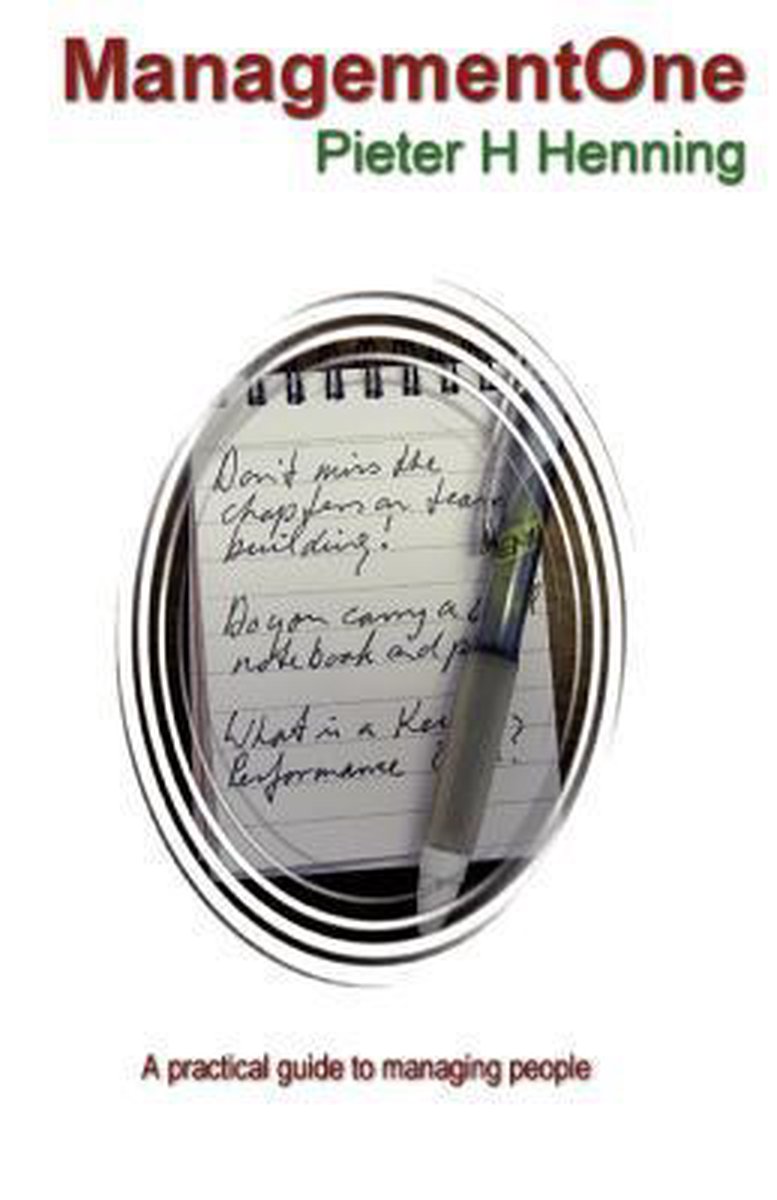 ManagementOne
Pieter H Henning
Don't miss the
chapters on team
building!
Do you carry a
notebook and
What is a Key ?
Performance
A practical guide to managing people